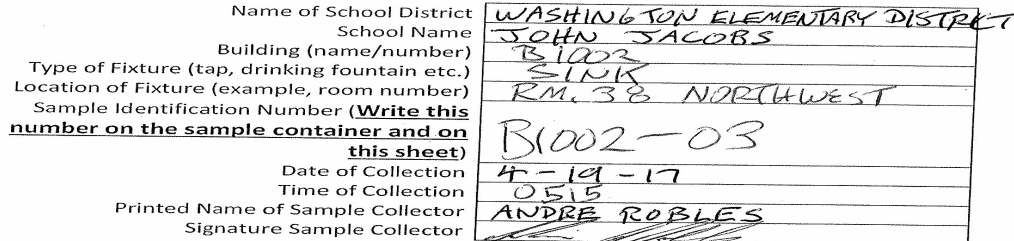 Name of School District WASHINGTON ELEMENTARY DISTRICT
School Name JOHN JACOBS
Building (name/number) B1002
Type of Fixture (tap, drinking fountain etc.) SINK
Location of Fixture (example, room number) RM. 38 NORTHWEST
Sample Identification Number (Write this
number on the sample container and on B1002-03
this sheet)
Date of Collection 4-19-17
Time of Collection 0515
Printed Name of Sample Collector ANDRE ROBLES
Signature Sample Collector